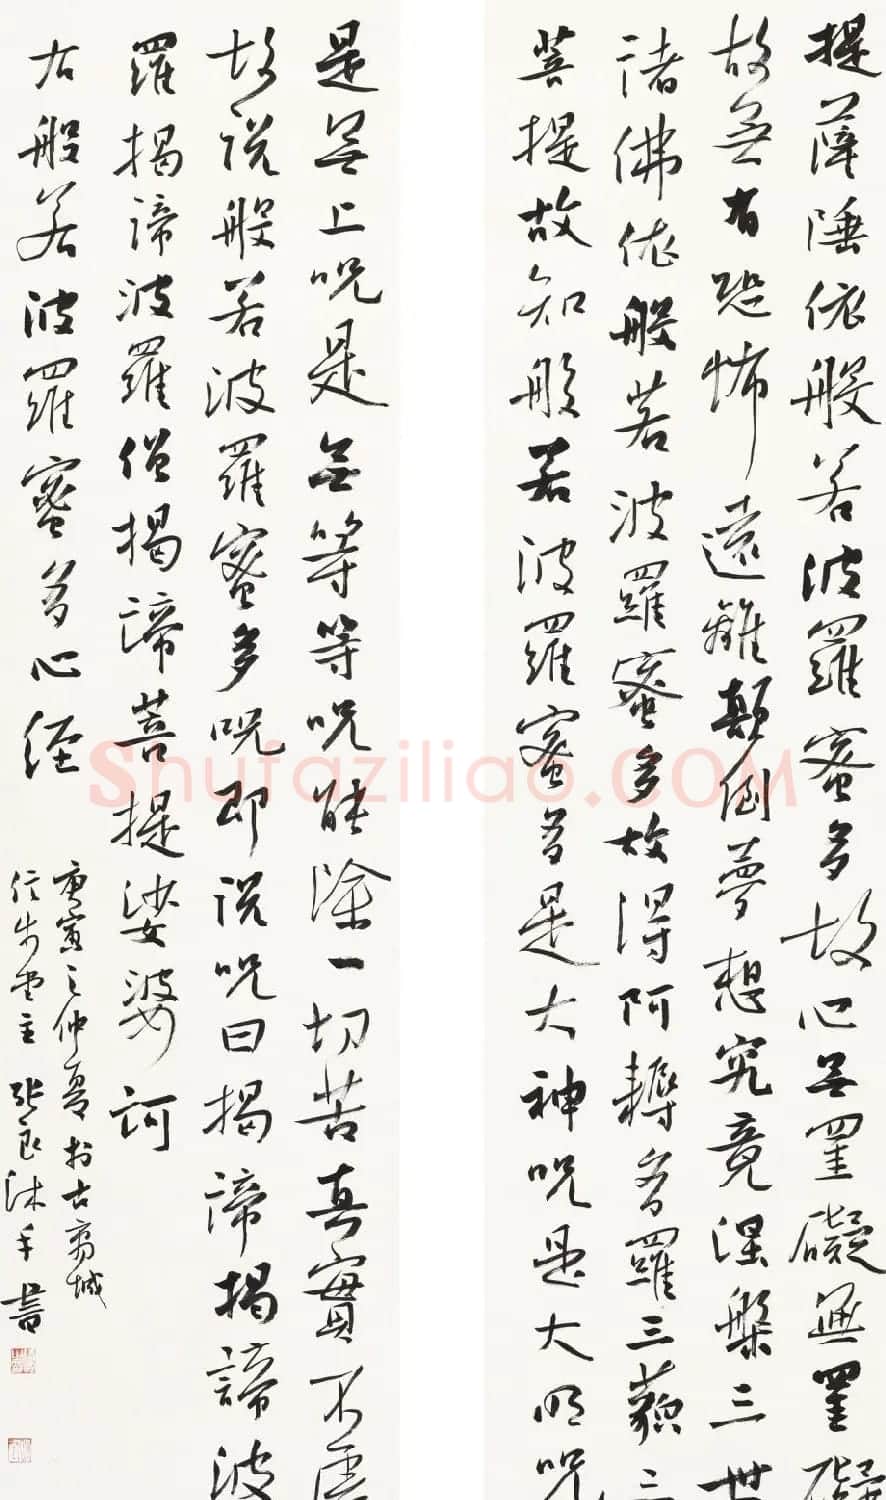 提薩陲依般若波羅蜜多故心无罣礙無罣礙
故無有恐怖遠離顛倒夢想究竟涅槃三世
諸佛依般若波羅蜜多故得阿耨多羅三藐三
菩提故知般若波羅蜜多是大神呪是大明呪
是无上呪是無等等呪能除一切苦真實不虛
故說般若波羅蜜多呪即說呪曰揭諦揭諦波
羅揭諦波羅僧揭諦菩提娑婆訶
右般若波羅蜜多心经
庚寅之仲夏於古商城
信步堂主張良沐手書
Shufaziliao.COM